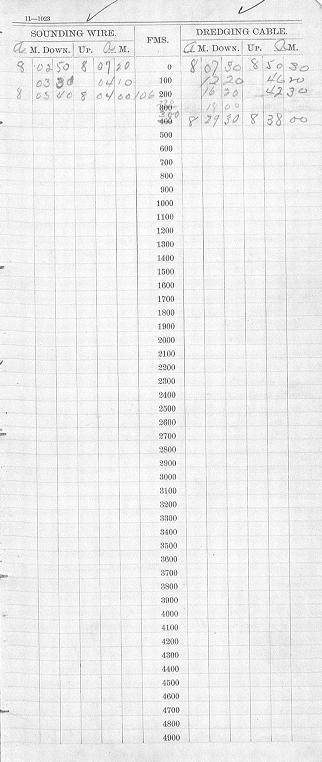 11—1023
SOUNDING WIRE. FMS. DREDGING CABLE.
a M. DOWN. UP. a M. a M. DOWN. UP. a M.
8 02 50 8 07 20 0 8 07 30 8 50 30
03 30 04 10 100 12 20 46 20
8 03 40 8 04 00 106 200 16 20 42 30
300 19 00
380 400 8 29 30 8 38 00
500
600
700
800
900
1000
1100
1200
1300
1400
1500
1600
1700
1800
1900
2000
2100
2200
2300
2400
2500
2600
2700
2800
2900
3000
3100
3200
3300
3400
3500
3600
3700
3800
3900
4000
4100
4200
4300
4400
4500
4600
4700
4800
4900